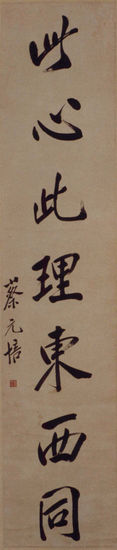 此心此理東西同
蔡元培